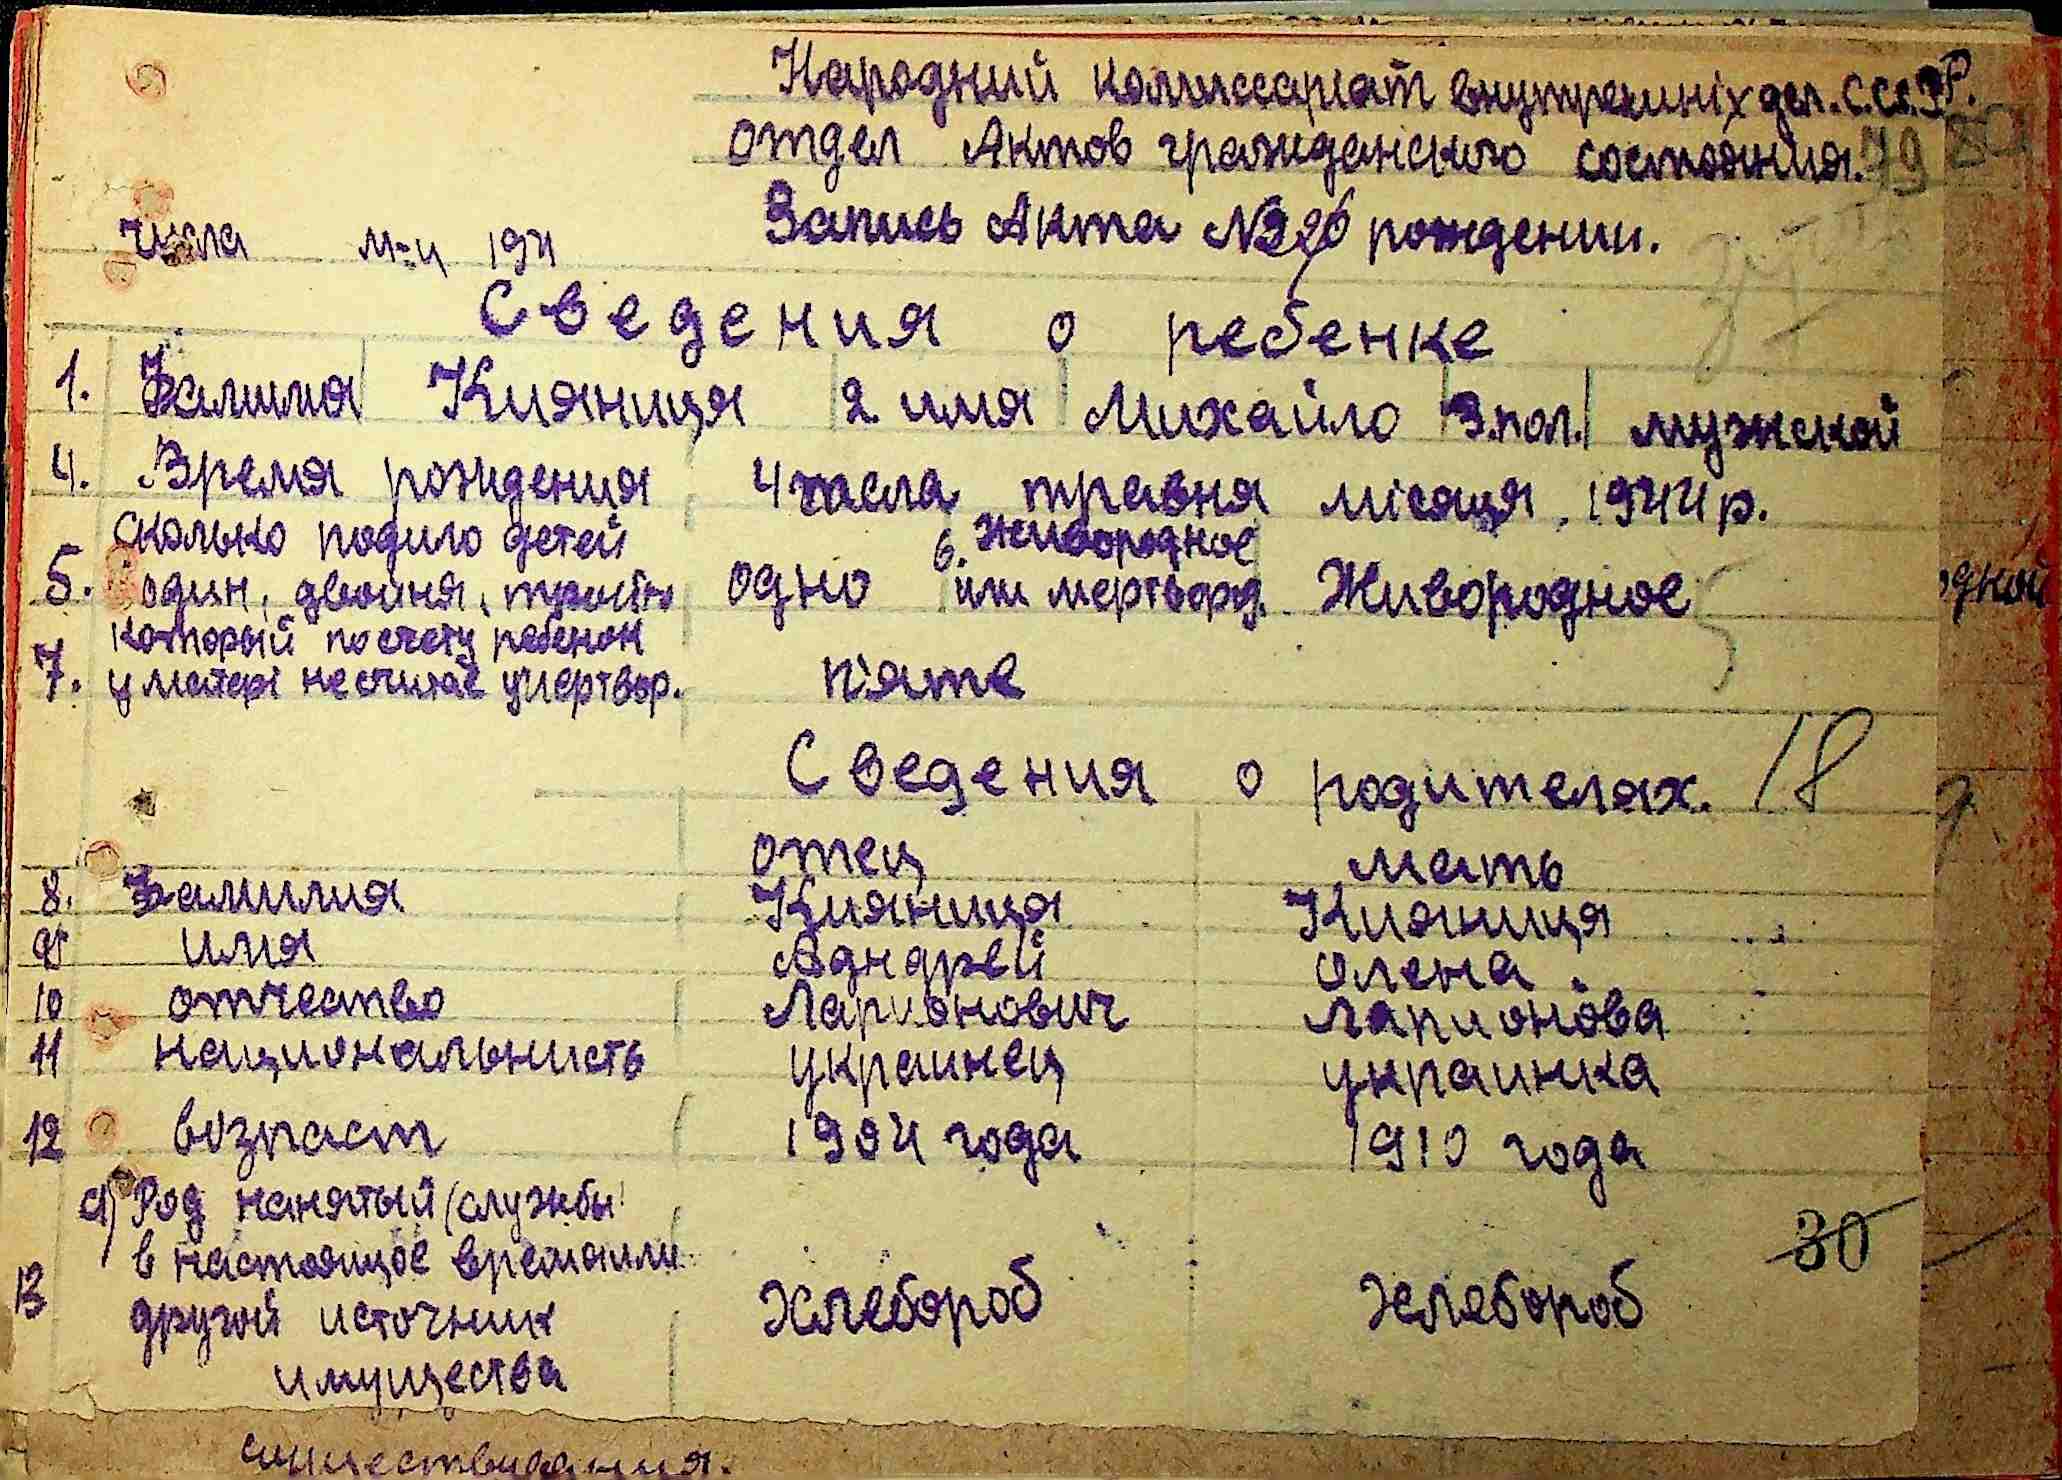 Народний комиссариат внутренних дел. С.С.С.Р.
отдел Актов гражданского состояния. 79
Запись Акта № рождении.
числа м-ц 194
Сведения о ребенке
1. Фамилия Кияниця 2. имя Михайло 3. пол. мужской
4. Время рождения 4 числа травня місяця, 1944 р.
сколько родило детей
5. один, двойня, тройня одно 6. живородное или мертворд. Живородное
который по счету ребенок
7. у матері не считае умертвор. п'яте
Сведения о родителях. 18
отец мать
8. Фамилия Кияниця Кияниця
9 имя Андрей Олена
10 отчество Ларионович Ларионова
11 национальнисть украинец украинка
12 возраст 1904 года 1910 года
а) Род нанятый (службы
в настоящое время или 30
13 другой источник хлебороб хлебороб
имущества
существования.
дной